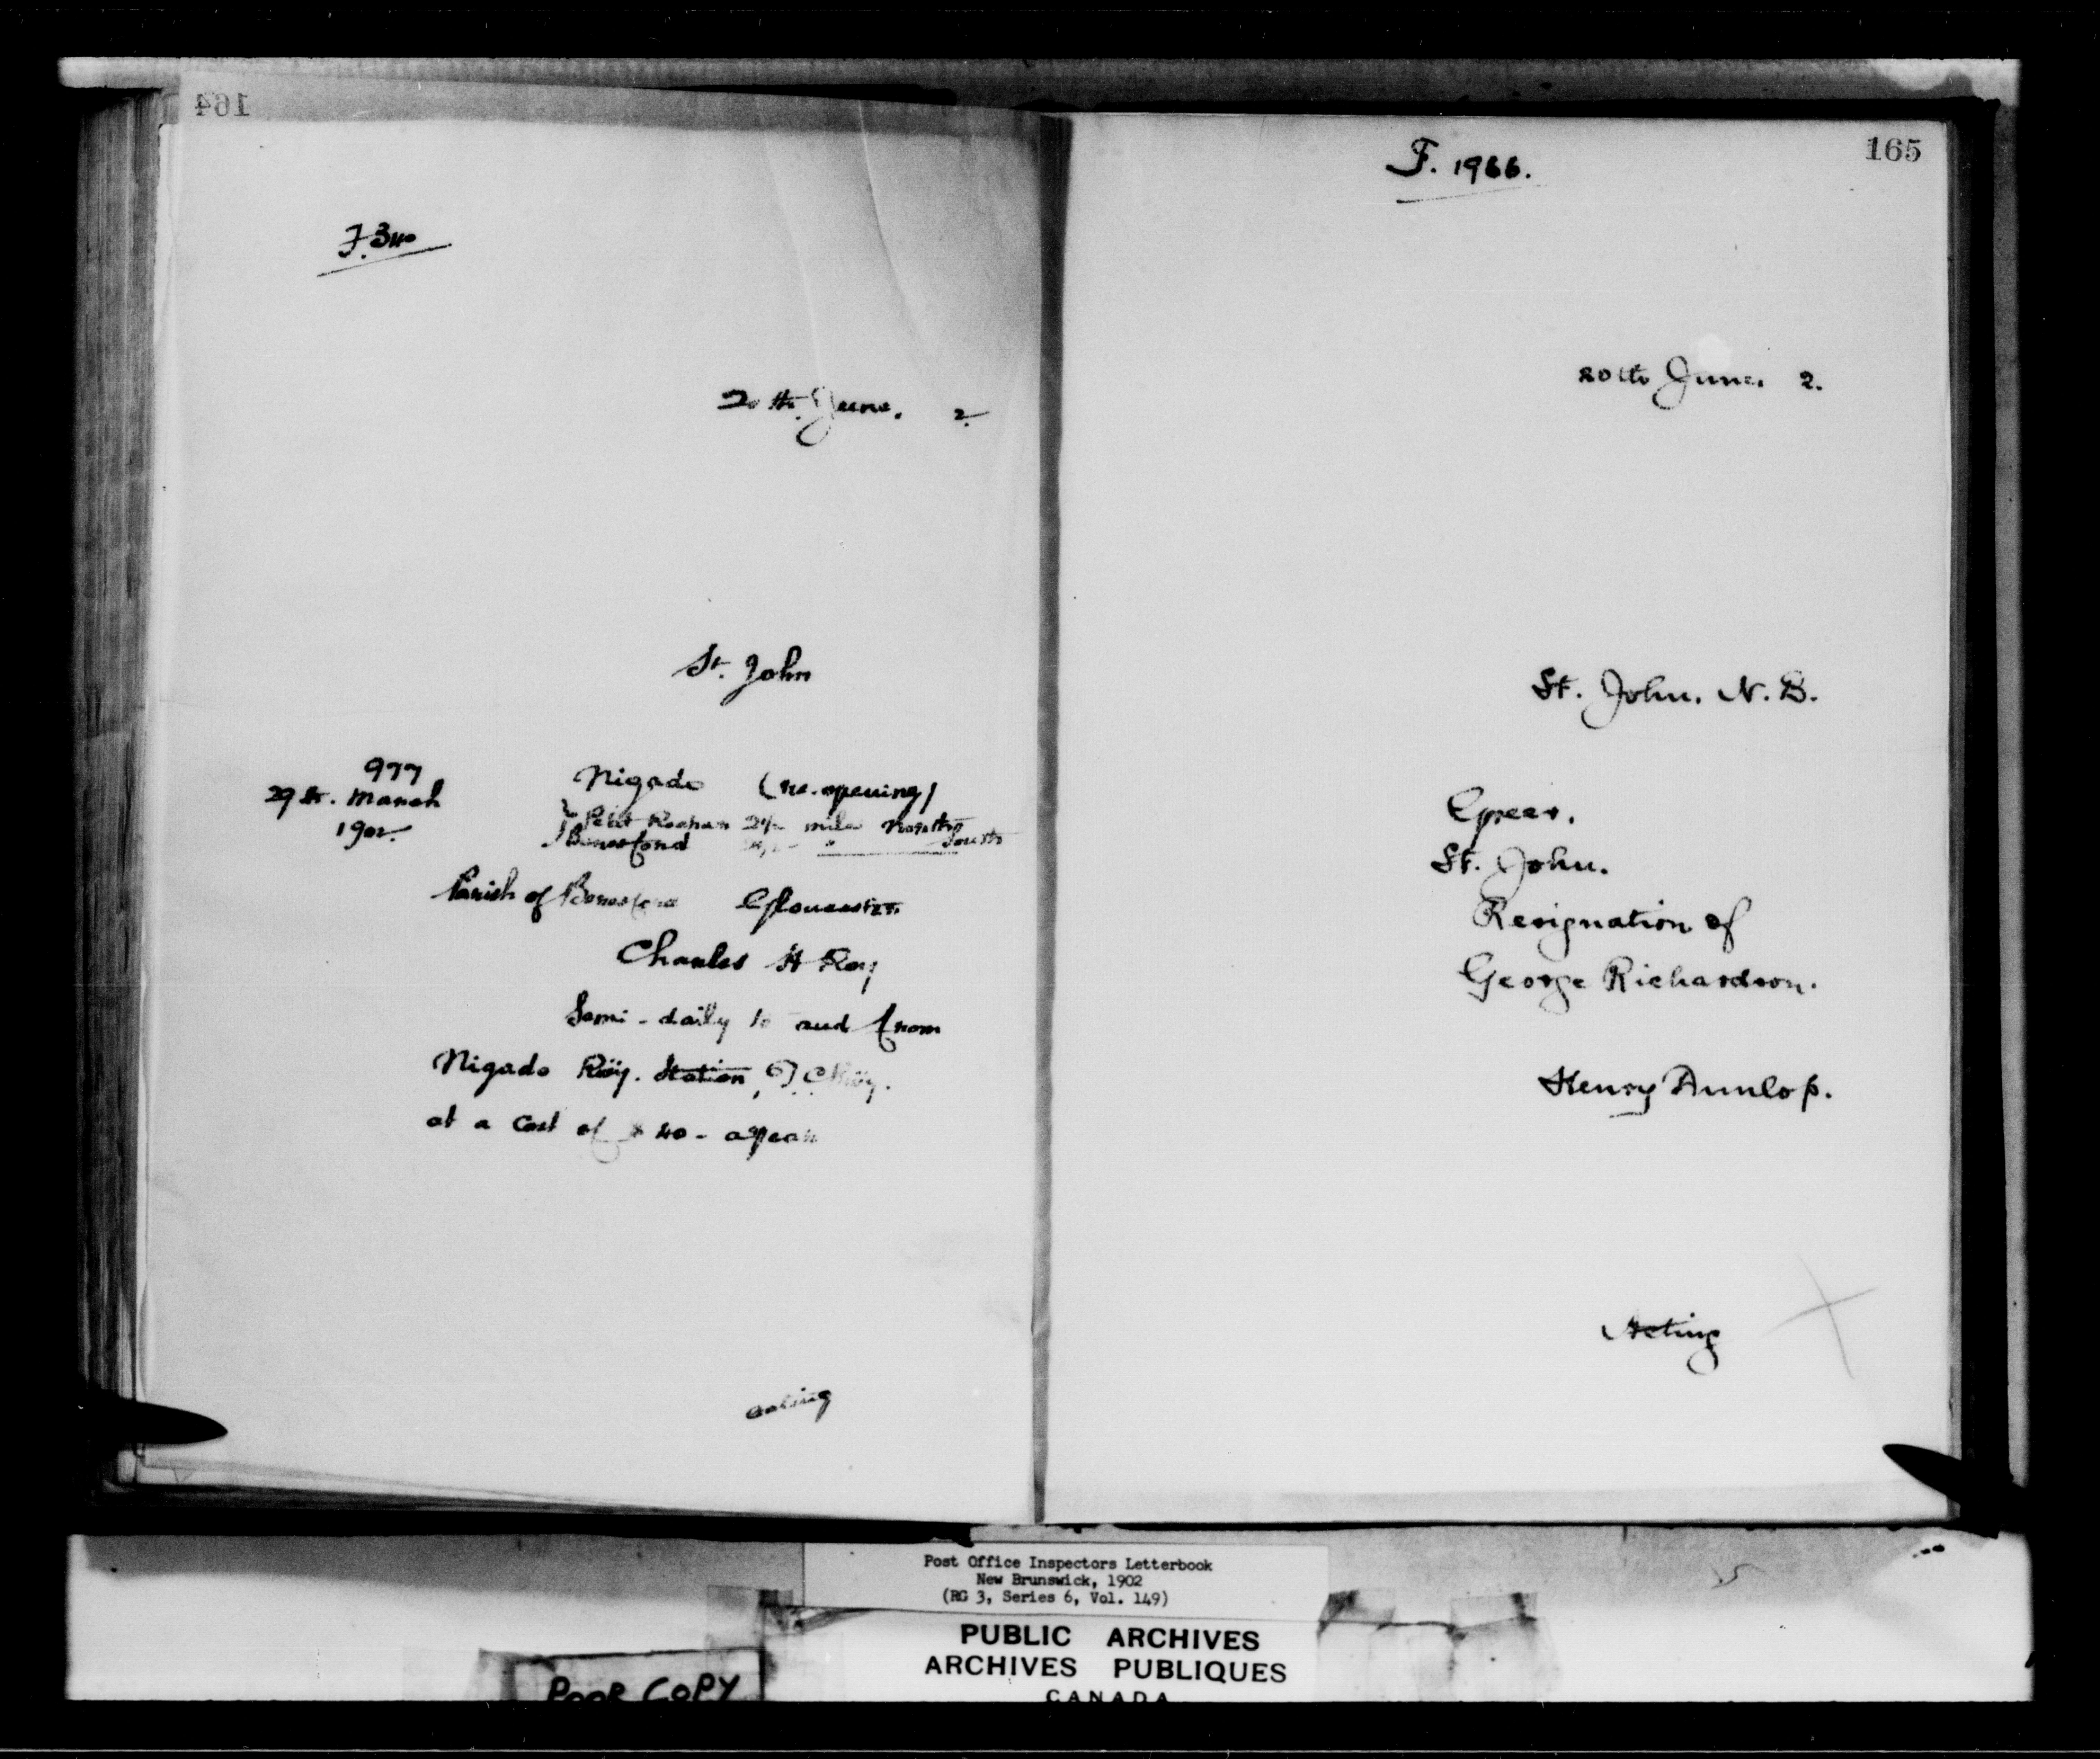 164
F. 340
20th. June. 2.
St. John
977
29th. March
1902.
Nigado (re-opening)
Petit Rocher 2½ miles North
Beresford " South
Parish of Beresford Gloucester.
Charles H Roy
Semi-daily to and from
Nigado Ry. Station,
at a cost of $40- a year
acting
165
F. 1966.
20th June. 2.
St. John. N. B.
Greer.
St. John.
Resignation of
George Richardson.
Henry Dunlop.
Acting
Post Office Inspectors Letterbook
New Brunswick, 1902
(RG 3, Series 6, Vol. 149)
PUBLIC ARCHIVES
ARCHIVES PUBLIQUES
CANADA
POOR COPY